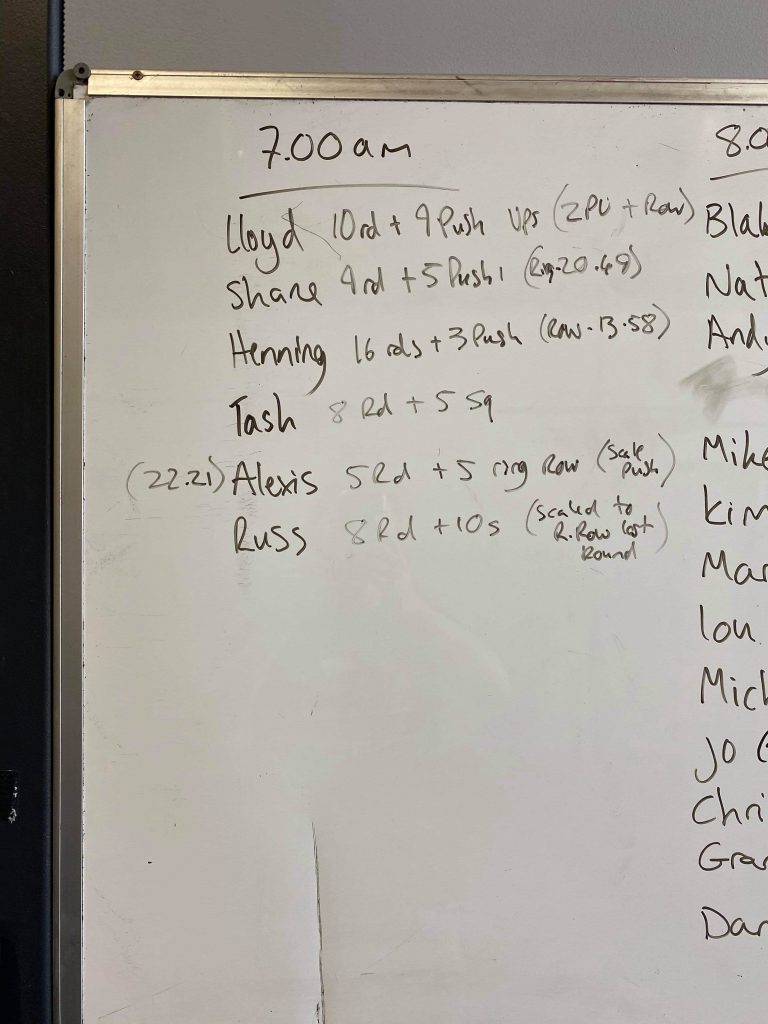 7.00 am
Lloyd 10rd + 9 Push Ups (2PU + Row)
Shane 9rd + 5 Push (20.49)
Henning 16 rds + 3 Push (Row. 13.58)
Tash 8 Rd + 5 Sq
(22.21) Alexis 5 Rd + 5 ring Row (Scale Push)
Russ 8 Rd + 10s (Scaled to
R.Row last
Round)
8.0
Blak
Nat
Andy
Mike
Kim
Mar
Lou
Mich
Jo (
Chri
Gra
Dan